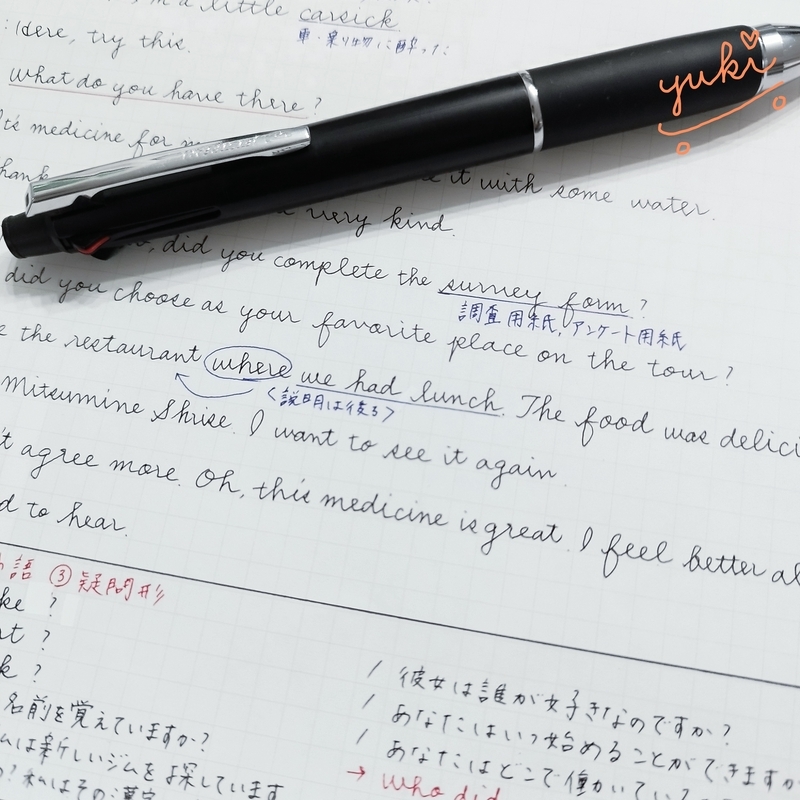 a little carsick
車・乗り物に酔った
Here, try this.
what do you have there?
It's medicine for
yuki
it with some water.
very kind.
did you complete the survey form?
調査用紙, アンケート用紙
did you choose as your favorite place on the tour?
the restaurant where we had lunch. The food was delici
<説明は後ろ>
Mitsumine Shrise. I want to see it again.
't agree more. Oh, this medicine is great. I feel better al
d to hear.
語 ③疑問形
ke ?
t ?
k ?
/ 彼女は誰が好きなのですか?
名前を覚えていますか?
/ あなたはいつ始めることができますか
は新しいジムを探しています
/ あなたはどこで働いてい
→ who did
? 私はその漢字